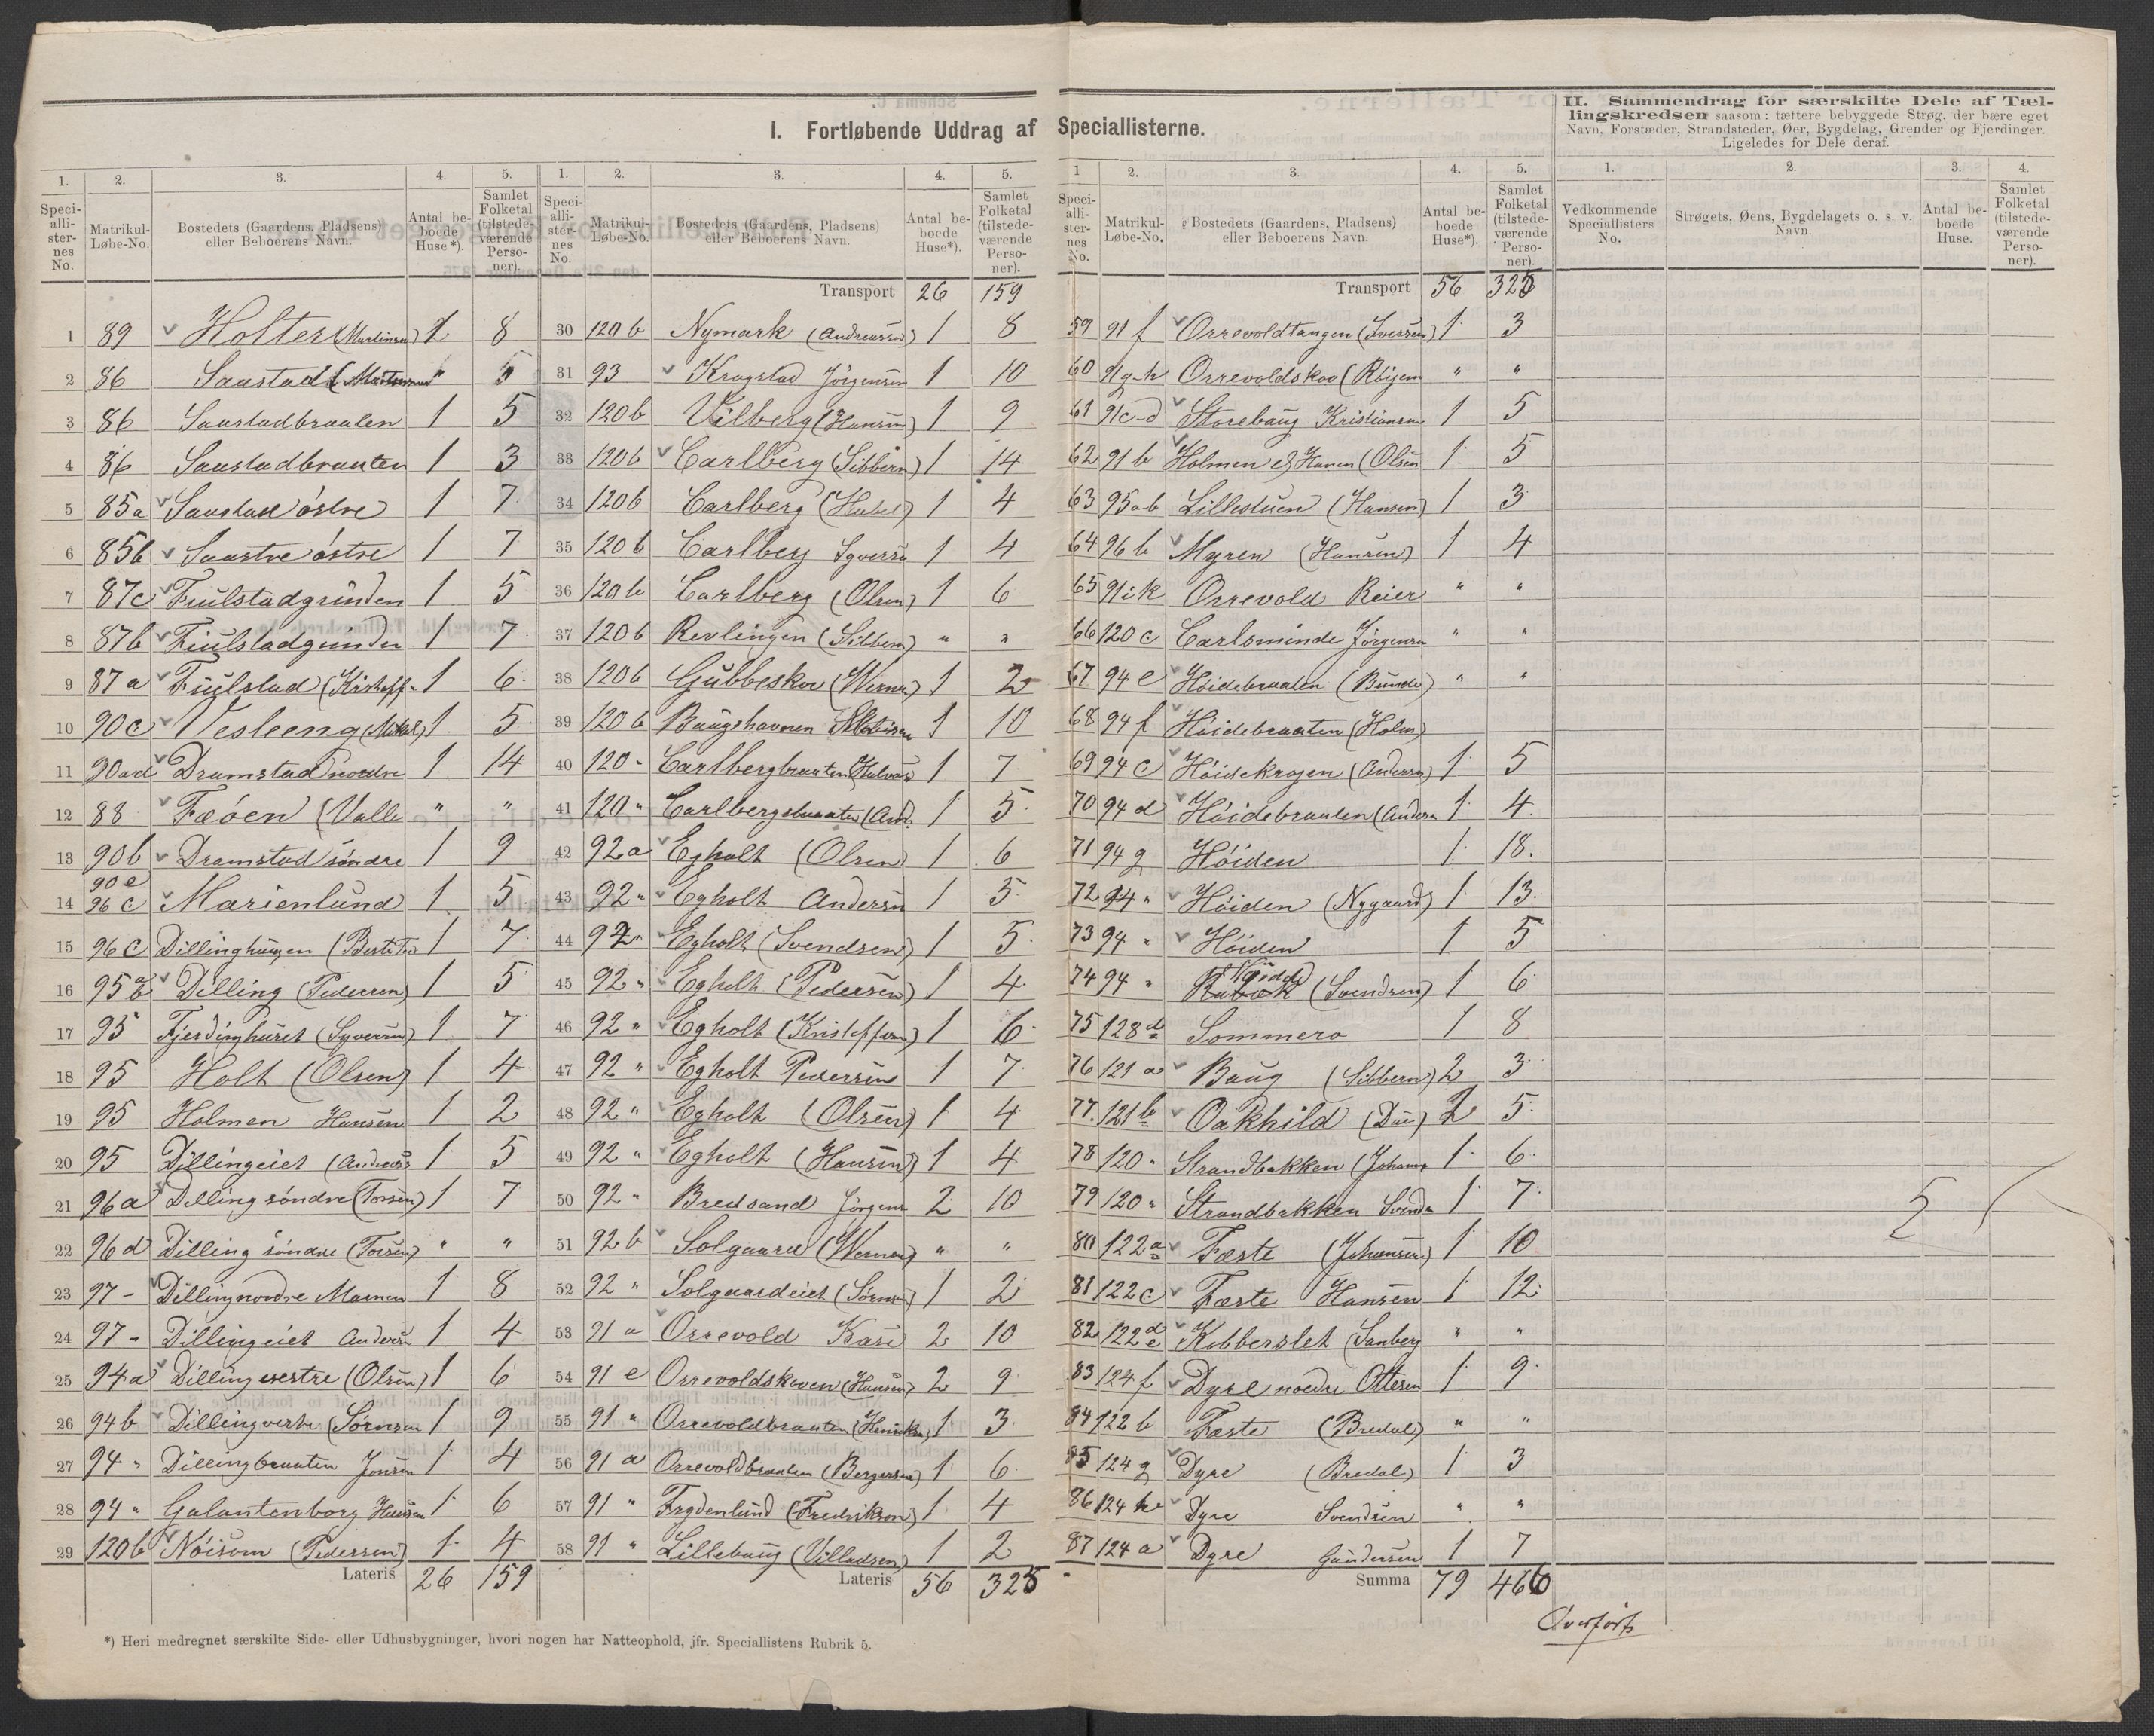 I. Fortløbende Uddrag af Speciallisterne.
II. Sammendrag for særskilte Dele af Tællingskredsen saasom: tættere bebyggede Strøg, der bære eget
Navn, Forstæder, Strandsteder, Øer, Bygdelag, Grender og Fjerdinger.
Ligeledes for Dele deraf.
1. 2. 3. 4. 5.
Speciallisternes No. Matrikul-Løbe-No. Bostedets (Gaardens, Pladsens) eller Beboerens Navn. Antal beboede Huse*). Samlet Folketal (tilstedeværende Personer).
1 89 Holter (Martinsen) 1 8
2 86 Saastad " 5
3 86 Saastadbraaten 1 5
4 86 Saastadbraaten 1 3
5 85a Saastad østre 1 7
6 85b Saastre østre 1 7
7 87c Fiulstadgrinden 1 5
8 87b Fiulstadgrinden 1 7
9 87a Fiulstad (Kristoff. 1 6
10 90c Vesleeng (Mikkel) 1 5
11 90ad Dramstad nordre 1 14
12 88 Fæøen (Valle " "
13 90b Dramstad søndre 1 9
14 90e 96c Marienlund 1 5
15 96c Dillinghaugen 1 7
16 95 Dilling (Pedersen) 1 5
17 95 Fjerdinghuset (Syversen) 1 7
18 95 Holt (Olsen) 1 4
19 95 Holmen Hansen 1 2
20 95 Dillingeiet (Andreas 1 5
21 96a Dilling søndre (Torsen) 1 7
22 96d Dilling søndre (Torsen) " "
23 97- Dilling nordre Mamen 1 8
24 97- Dillingeiet Anders 1 4
25 94a Dilling vestre (Olsen) 1 6
26 94b Dilling vestre (Sørensen 1 9
27 94 " Dillingbraaten Jensen 1 4
28 94 " Galantenborg Hansen 1 6
29 120b Nøisom (Pedersen) 1 4
Lateris 26 159
1. 2. 3. 4. 5.
Speciallisternes No. Matrikul-Løbe-No. Bostedets (Gaardens, Pladsens) eller Beboerens Navn. Antal beboede Huse*). Samlet Folketal (tilstedeværende Personer).
Transport 26 159
30 120b Nymark (Andreassen) 1 8
31 93 Krogstad Jørgensen 1 10
32 120b Vilberg (Hansen) 1 9
33 120b Carlberg (Sibbern) 1 14
34 120b Carlberg 1 4
35 120b Carlberg Syversn 1 4
36 120b Carlberg (Olsen) 1 6
37 120b Revlingen (Sibbern) " "
38 120b Gubbeskov (Werner) 1 2
39 120b Baugshavnen 1 10
40 120 - Carlbergbraaten Halvors 1 7
41 120 " Carlbergsbraaten (And. 1 5
42 92a Egholt (Olsen) 1 6
43 92 " Egholt Andersen 1 5
44 92 " Egholt (Svendsen) 1 5
45 92 " Egholt (Pedersen) 1 4
46 92 " Egholt (Kristoffersen) 1 6
47 92 " Egholt Pedersen 1 7
48 92 " Egholt (Olsen) 1 4
49 92 " Egholt (Hansen) 1 4
50 92 " Bredsand Jørgens 2 10
51 92b Solgaard (Werner) " "
52 92 " Solgaardeiet (Sørensen) 1 2
53 91a Orrevold 2 10
54 91e Orrevoldskoven (Hansen) 2 9
55 91 " Orrevoldbraaten (Henriksen) 1 3
56 91a Orrevoldbraaten (Bergersen) 1 6
57 91 " Frydenlund (Fredrikson) 1 4
58 91 " Lillebaug (Villadsen) 1 2
Lateris 56 325
1 2. 3. 4. 5.
Speciallisternes No. Matrikul-Løbe-No. Bostedets (Gaardens, Pladsens) eller Beboerens Navn. Antal beboede Huse*). Samlet Folketal (tilstedeværende Personer)
Transport 56 325
59 91f Orrevoldtangen (Iversen) 1 3
60 91g-h Orrevoldskov " "
61 91c-d Storebaug Kristiansen 1 5
62 91b Holmen & Haven (Olsen 1 5
63 95a-b Lillestuen (Hansen) 1 3
64 96b Myren (Hansen) 1 4
65 91ik Orrevold Reier " "
66 120c Carlsminde Jørgensen " "
67 94e Høidebraaten (Bunde) " "
68 94f Høidebraaten (Holm)
69 94c Høidekragen (Andersn) 1 5
70 94d Høidebraaten (Andersn 1 4
71 94g Høiden 1 18.
72 94 " Høiden (Nygaard) 1 13
73 94 " Høiden 1 5
74 94 " Høiden (Svendsen) 1 6
75 128d Sommero 1 8
76 121a Baug (Sibbern) 2 3
77. 121b Oakhild (Due) 2 5
78 120 " Strandbakken (Johans 1 6
79 120 " Strandbakken Svends 1 7
80 122a Fæste (Johansen) 1 10
81 122c Fæste Hansen 1 12
82 122 d e Kobberslet (Sanberg " "
83 124f Dyre nordre Ottesen 1 9
84 122b Fæste (Bredal) " "
85 124g Dyre (Bredal) 1 3
86 124h Dyre Svendsen " "
87 124a Dyre Gundersen 1 7
Summa 79 460
Overført
1. 2. 3. 4.
Vedkommende Speciallisters No. Strøgets, Øens, Bygdelagets o. s. v. Navn. Antal beboede Huse. Samlet Folketal (tilstedeværende Personer).
5
*) Heri medregnet særskilte Side- eller Udhusbygninger, hvori nogen har Natteophold, jfr. Speciallistens Rubrik 5.